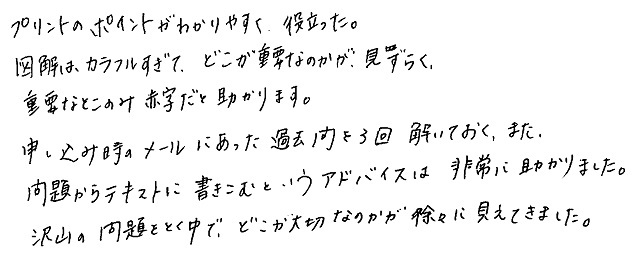 プリントのポイントがわかりやすく、役立った。
図解は、カラフルすぎて、どこが重要なのかが、見ずらく、
重要なとこのみ赤字だと助かります。
申し込み時のメールにあった過去問を3回解いておく、また、
問題からテキストに書きこむというアドバイスは非常に助かりました。
沢山の問題をとく中で、どこが大切なのかが徐々に見えてきました。